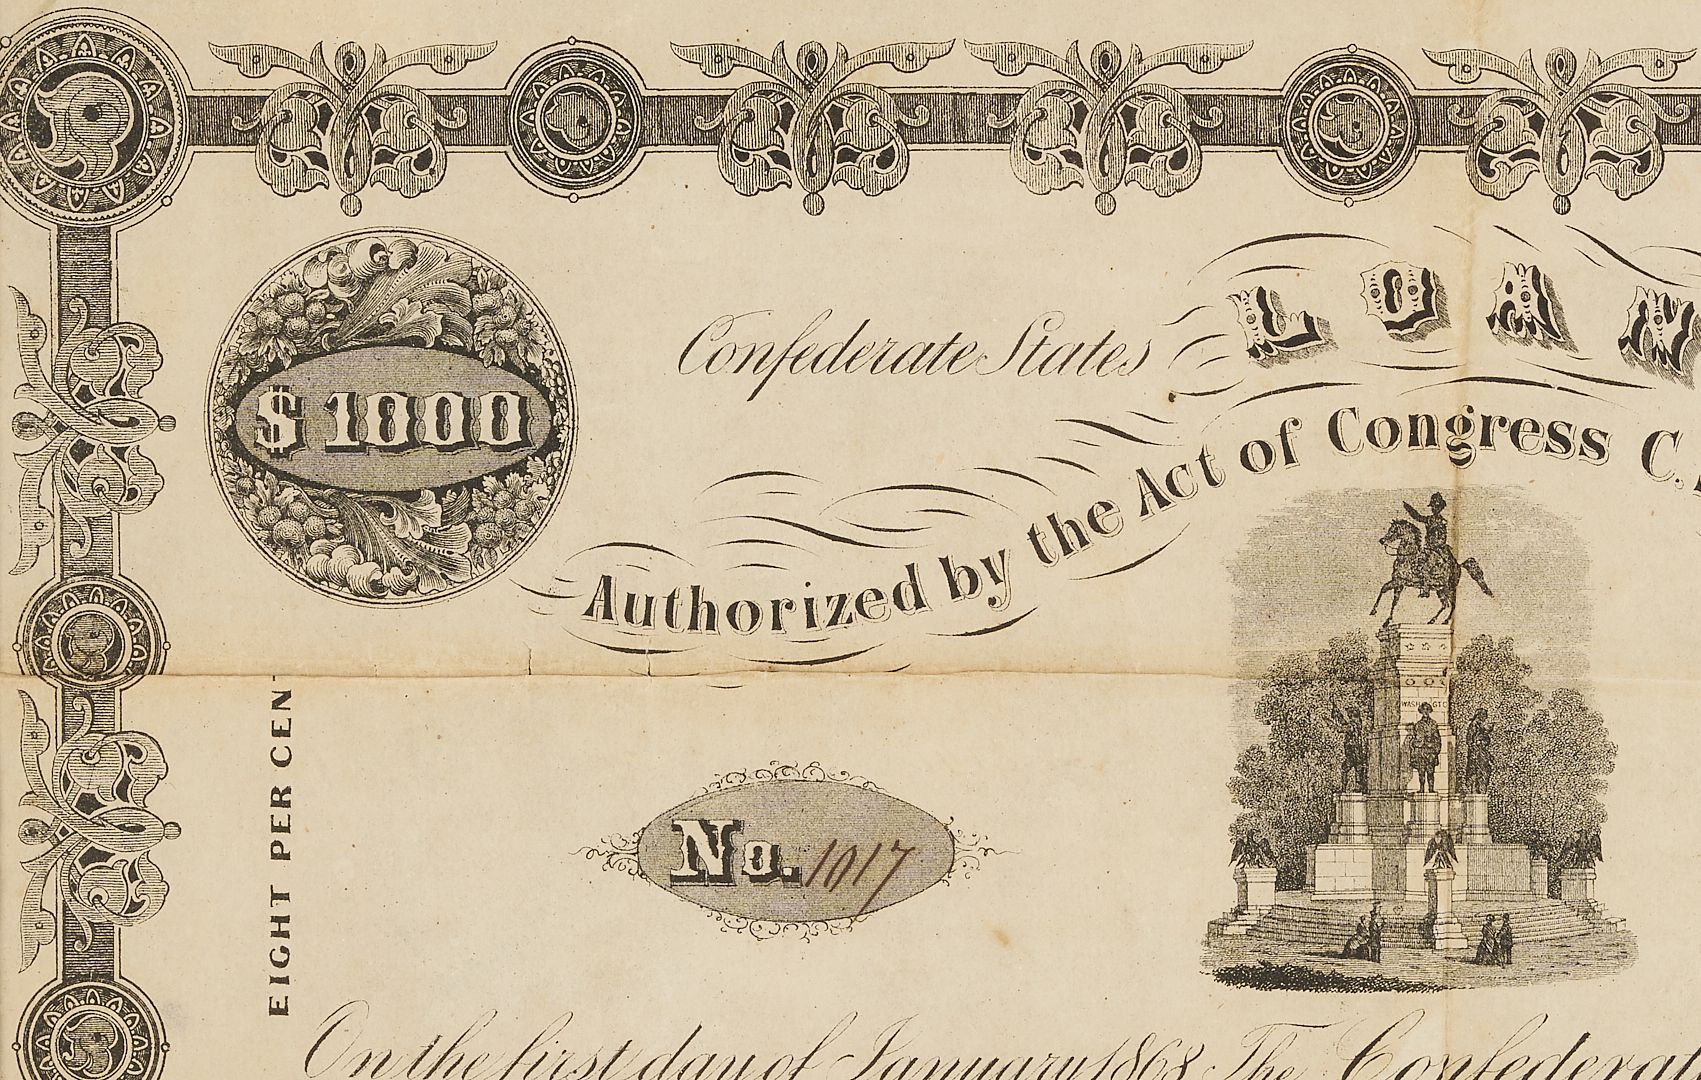 Confederate States LOAN
$1000
Authorized by the Act of Congress C.
WASHINGTO
EIGHT PER CENT
No. 1017
On the first day of January 1868 The Confederat